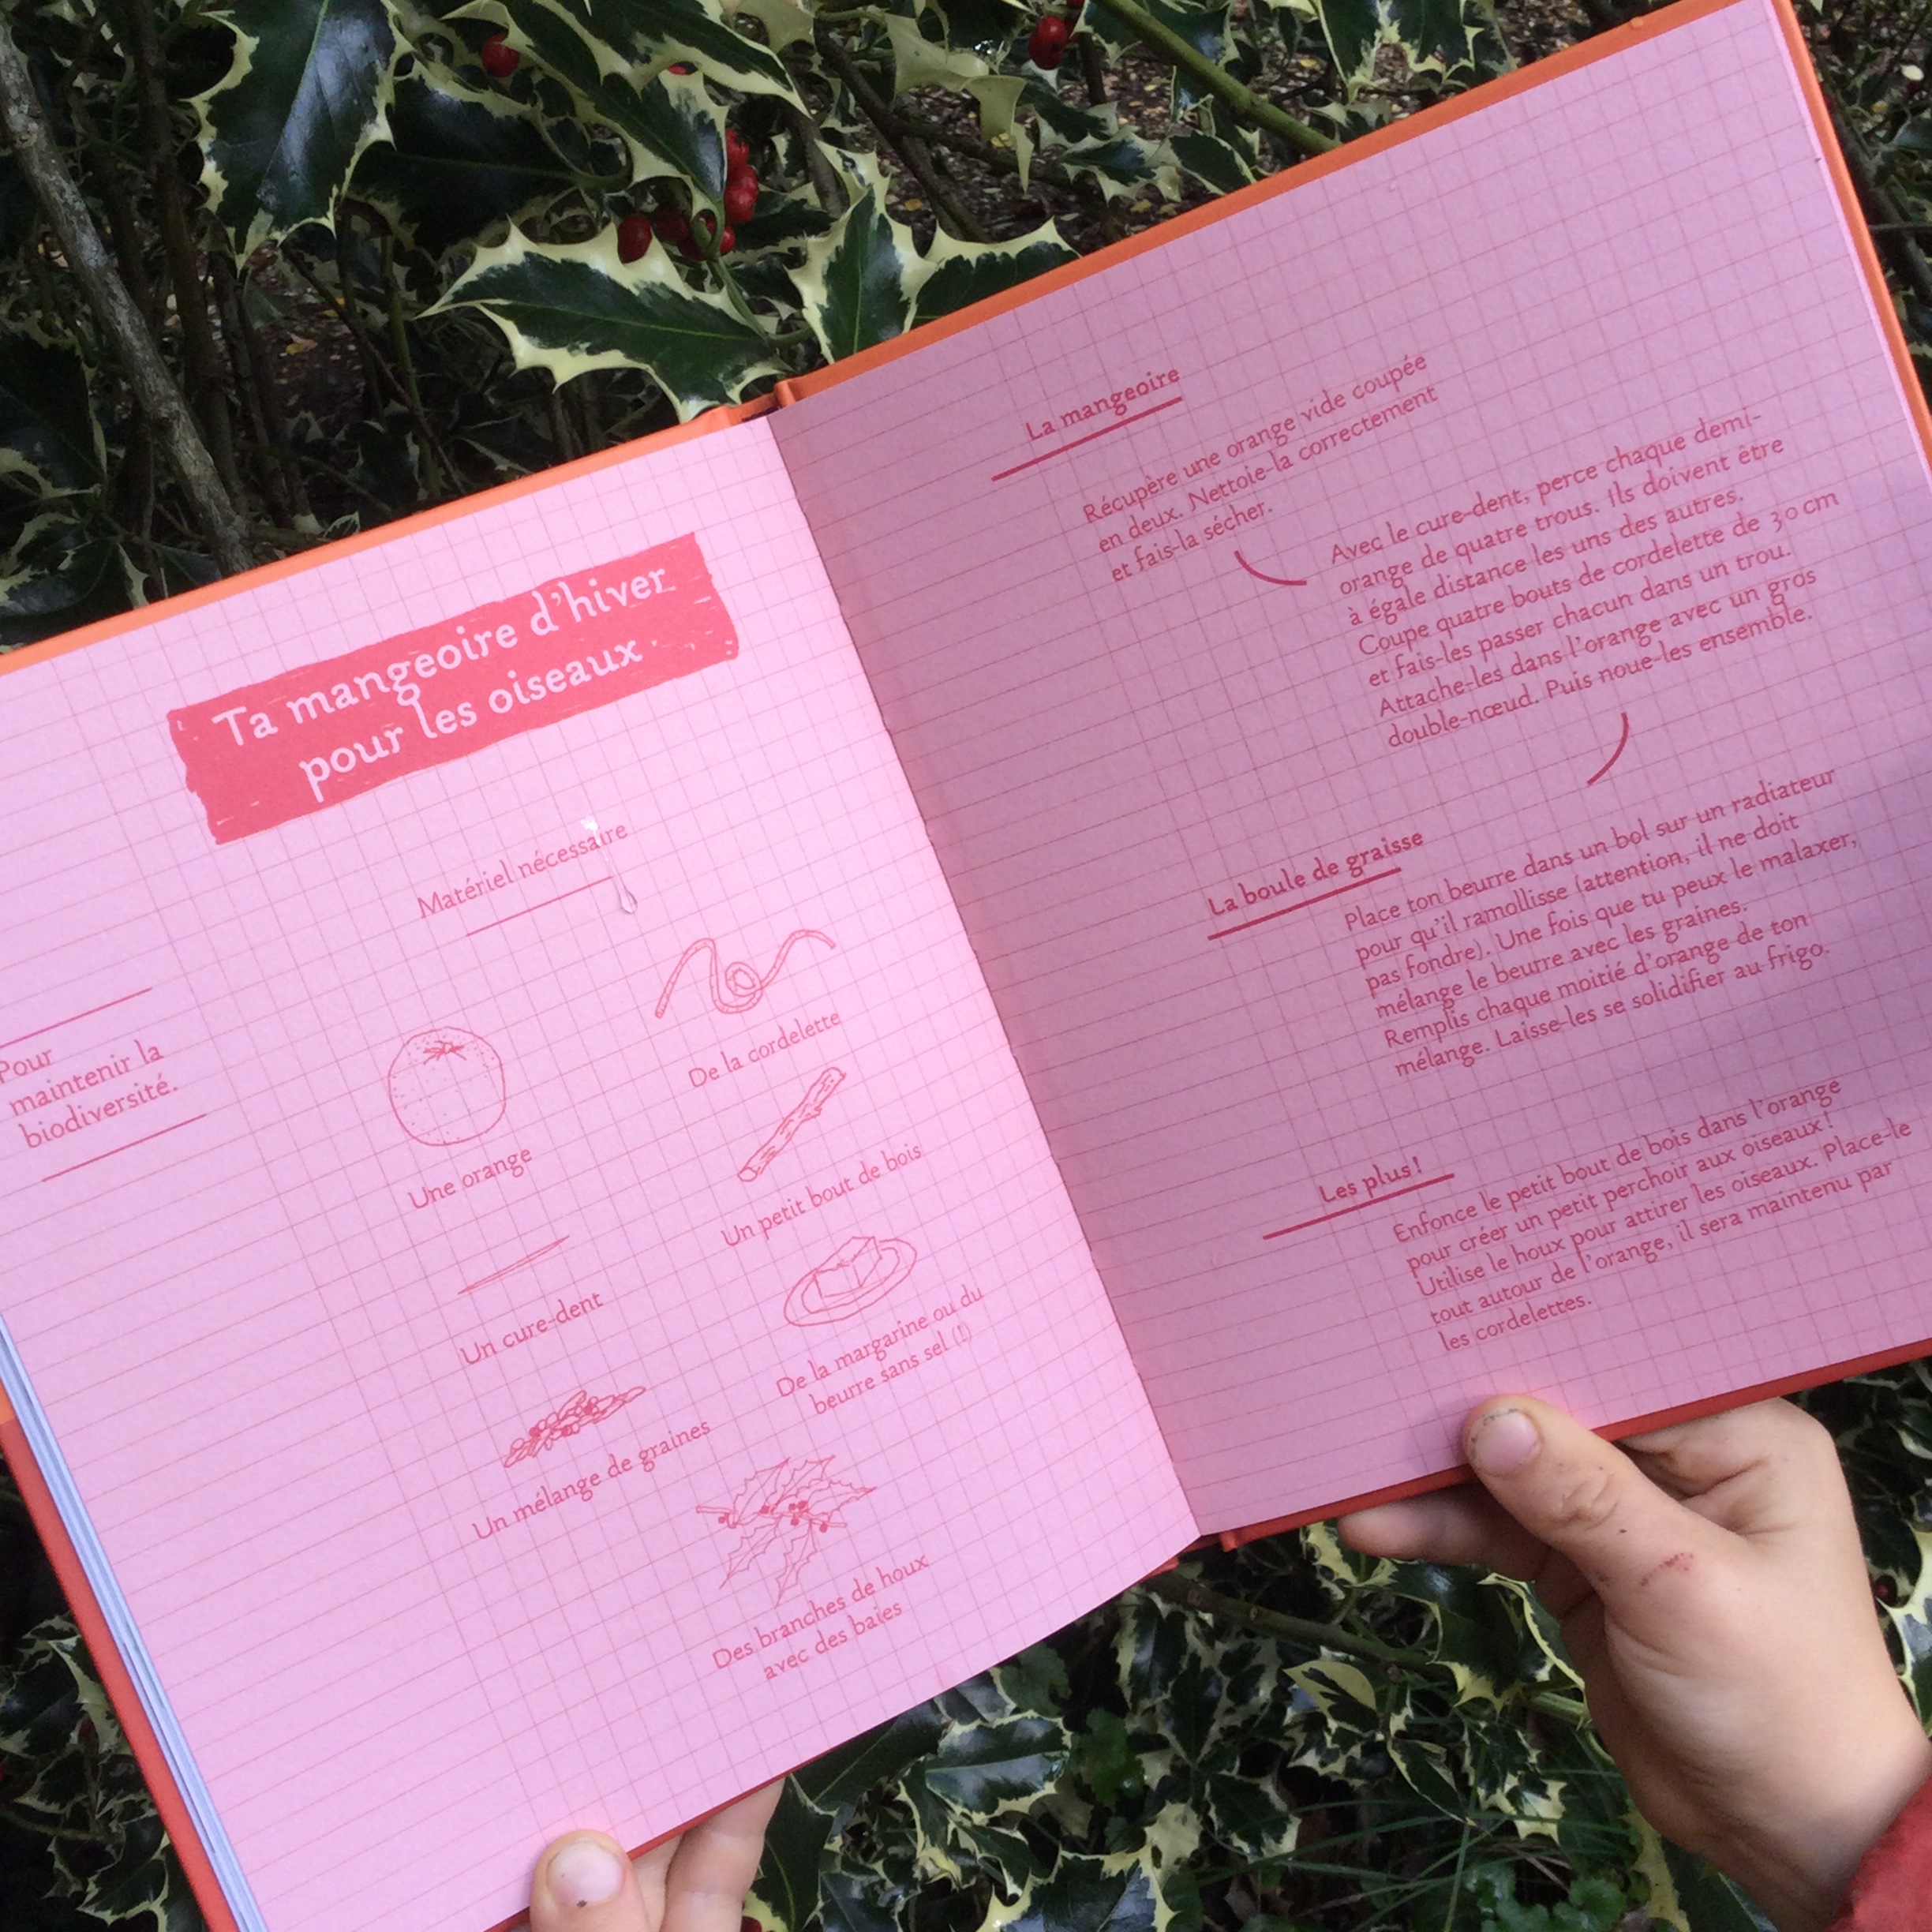 Ta mangeoire d'hiver
pour les oiseaux
Matériel nécessaire
Pour
maintenir la
biodiversité.
Une orange
De la cordelette
Un petit bout de bois
Un cure-dent
De la margarine ou du
beurre sans sel (!)
Un mélange de graines
Des branches de houx
avec des baies
La mangeoire
Récupère une orange vide coupée
en deux. Nettoie-la correctement
et fais-la sécher.
Avec le cure-dent, perce chaque demi-
orange de quatre trous. Ils doivent être
à égale distance les uns des autres.
Coupe quatre bouts de cordelette de 30 cm
et fais-les passer chacun dans un trou.
Attache-les dans l'orange avec un gros
double-nœud. Puis noue-les ensemble.
La boule de graisse
Place ton beurre dans un bol sur un radiateur
pour qu'il ramollisse (attention, il ne doit
pas fondre). Une fois que tu peux le malaxer,
mélange le beurre avec les graines.
Remplis chaque moitié d'orange de ton
mélange. Laisse-les se solidifier au frigo.
Les plus!
Enfonce le petit bout de bois dans l'orange
pour créer un petit perchoir aux oiseaux!
Utilise le houx pour attirer les oiseaux. Place-le
tout autour de l'orange, il sera maintenu par
les cordelettes.